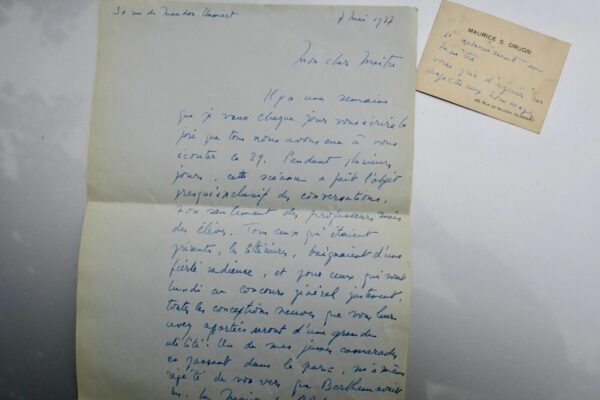 30 rue de Meudon. Clamart
7 Mai 1937
Mon cher Maître
Il y a une semaine
que je veux chaque jour vous écrire la
joie que tous nous avons eue à vous
écouter ce 29. Pendant plusieurs
jours, cette séance a fait l'objet
presqu'exclusif des conversations,
non seulement des professeurs mais
des élèves. Tous ceux qui étaient
présents, les littéraires, baignaient d'une
fierté radieuse, et pour ceux qui vont
lundi au concours général justement,
toutes les conceptions neuves que vous leur
avez apportées seront d'une grande
utilité. Un de mes jeunes camarades
en passant dans le parc, m'a même
répété de vos vers que
MAURICE S. DRUON
vous prie d'agréer ses
30, RUE DE MEUDON, CLAMART